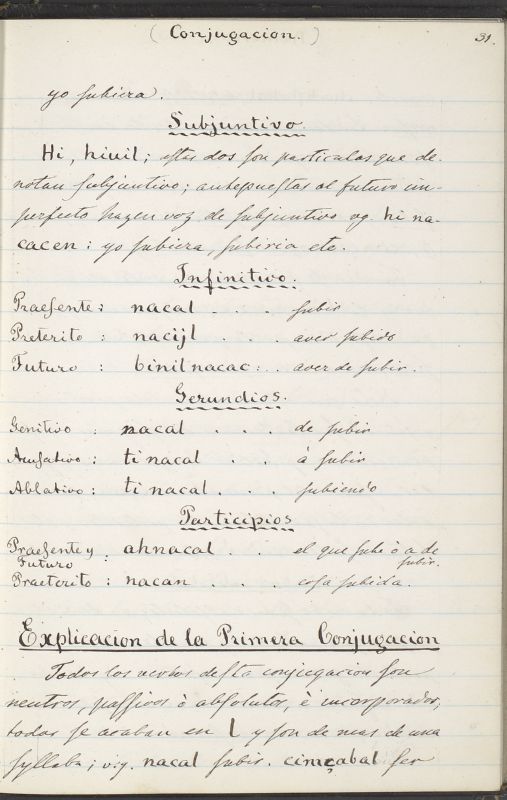 ( Conjugacion. ) 31.
yo subiera.
Subjuntivo.
Hi, hiuil; estas dos son particulas que de-
notan subjuntivo; antepuestas al futuro im-
perfecto hazen voz de subjuntivo vg. hi na-
cacen: yo subiera, subiria etc.
Infinitivo.
Praesente: nacal . . . subir
Preterito: nacijl . . . aver subido
Futuro: binil nacac: . . aver de subir.
Gerundios.
Genitivo: nacal . . . de subir
Acusativo: ti nacal . . . à subir
Ablativo: ti nacal . . . subiendo
Participios
Praesente y Futuro: ahnacal . . el que sube ò a de subir.
Praeterito: nacan . . . cosa subida.
Explicacion de la Primera Conjugacion
Todos los verbos desta conjugacion son
neutros, passivos ò absolutos, è incorporados;
todos se acaban en l y son de mas de una
syllaba; v.g. nacal subir. cimçabal ser